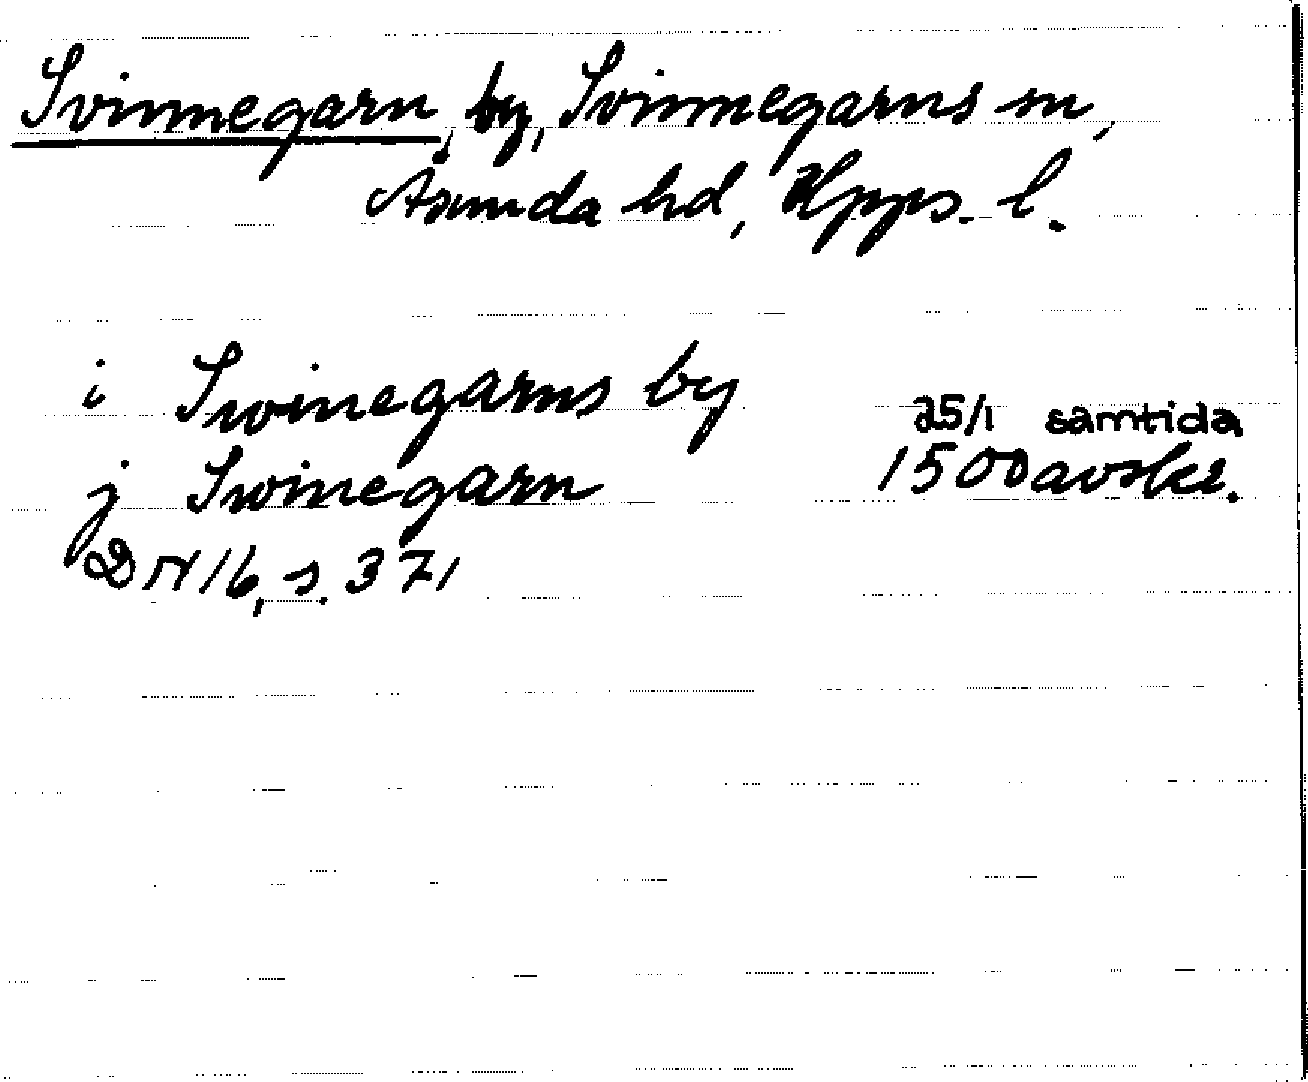 Svinnegarn, by, Svinnegarns sn,
Åsunda hd, Upps. l.
i Swinegarns by
25/1 samtida
j Swinegarn 1500 avskr.
DN 16, s. 371